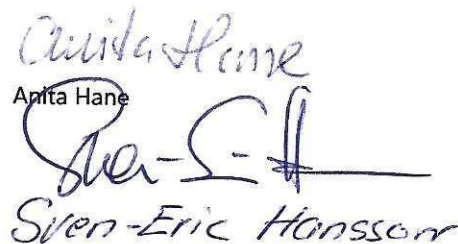 Anita Hane
Anita Hane
Sven-Eric Hansson